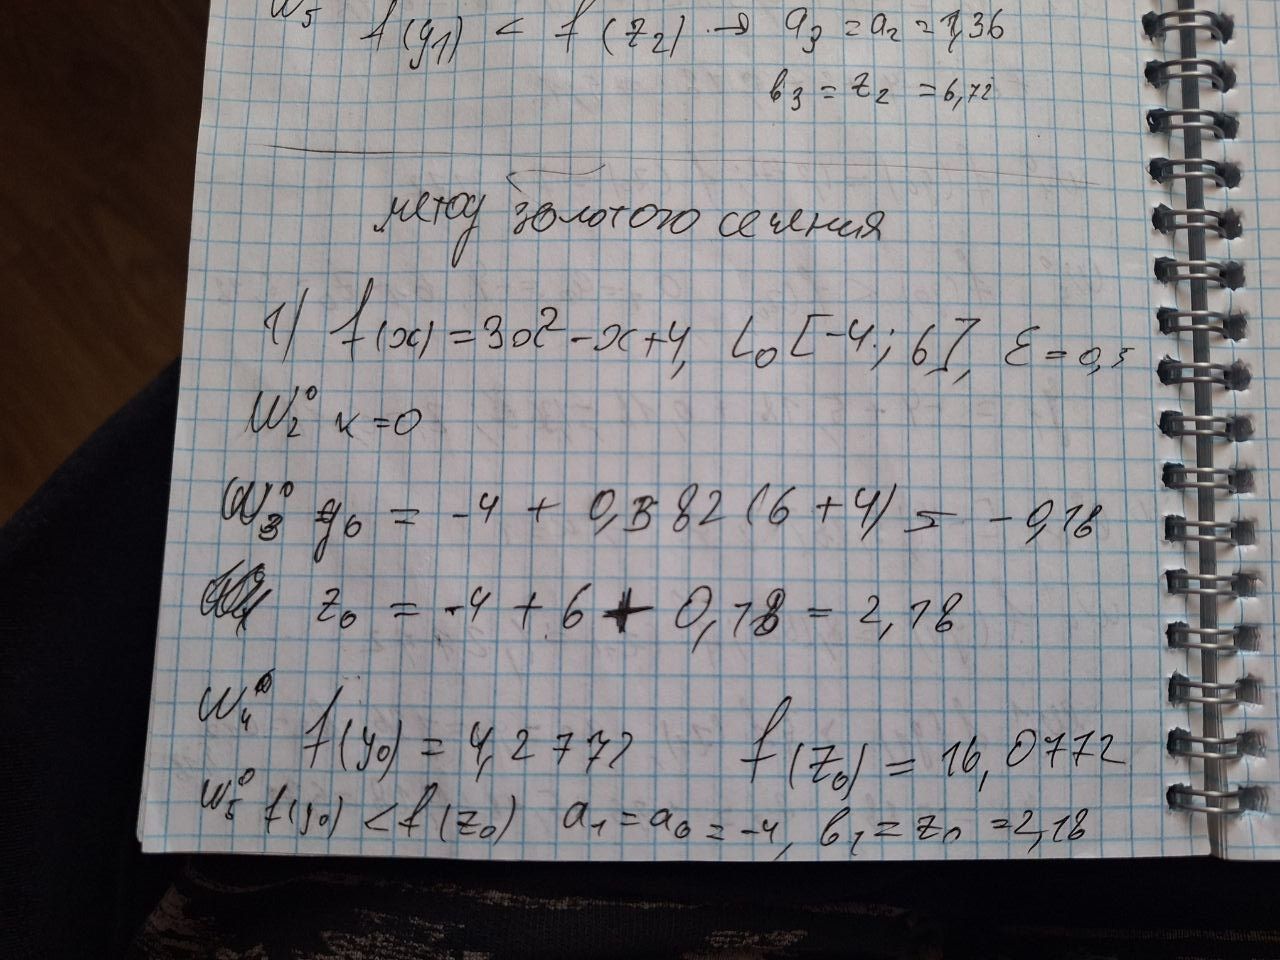 Ш5 f(y1) < f(z2) → a3 = a2 = 1,36
b3 = z2 = 6,72
метод золотого сечения
1) f(x) = 3x² - x + 4, L0 [-4; 6], ε = 0,5
Ш2⁰ k = 0
Ш3⁰ y0 = -4 + 0,382 (6 + 4) = -0,18
z0 = -4 + 6 + 0,18 = 2,18
Ш4⁰ f(y0) = 4,2772 f(z0) = 16,0772
Ш5⁰ f(y0) < f(z0) a1 = a0 = -4, b1 = z0 = 2,18